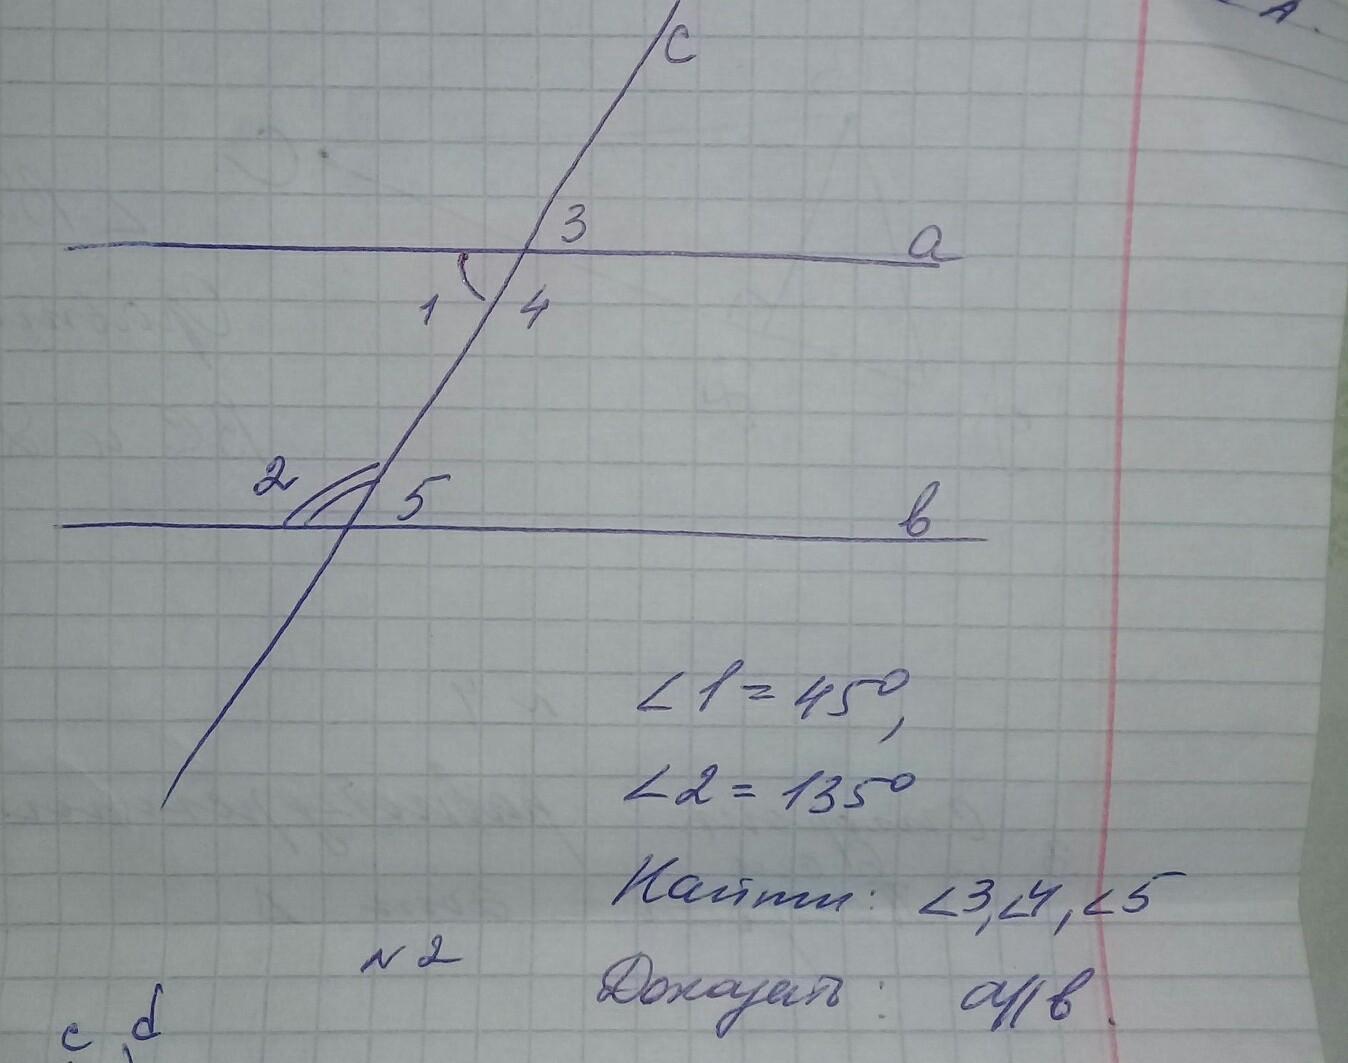 A.
c
3
a
1 4
2 5
в
∠1 = 45°,
∠2 = 135°
Найти: ∠3, ∠4, ∠5
N2
Доказать: a∥в.
c, d